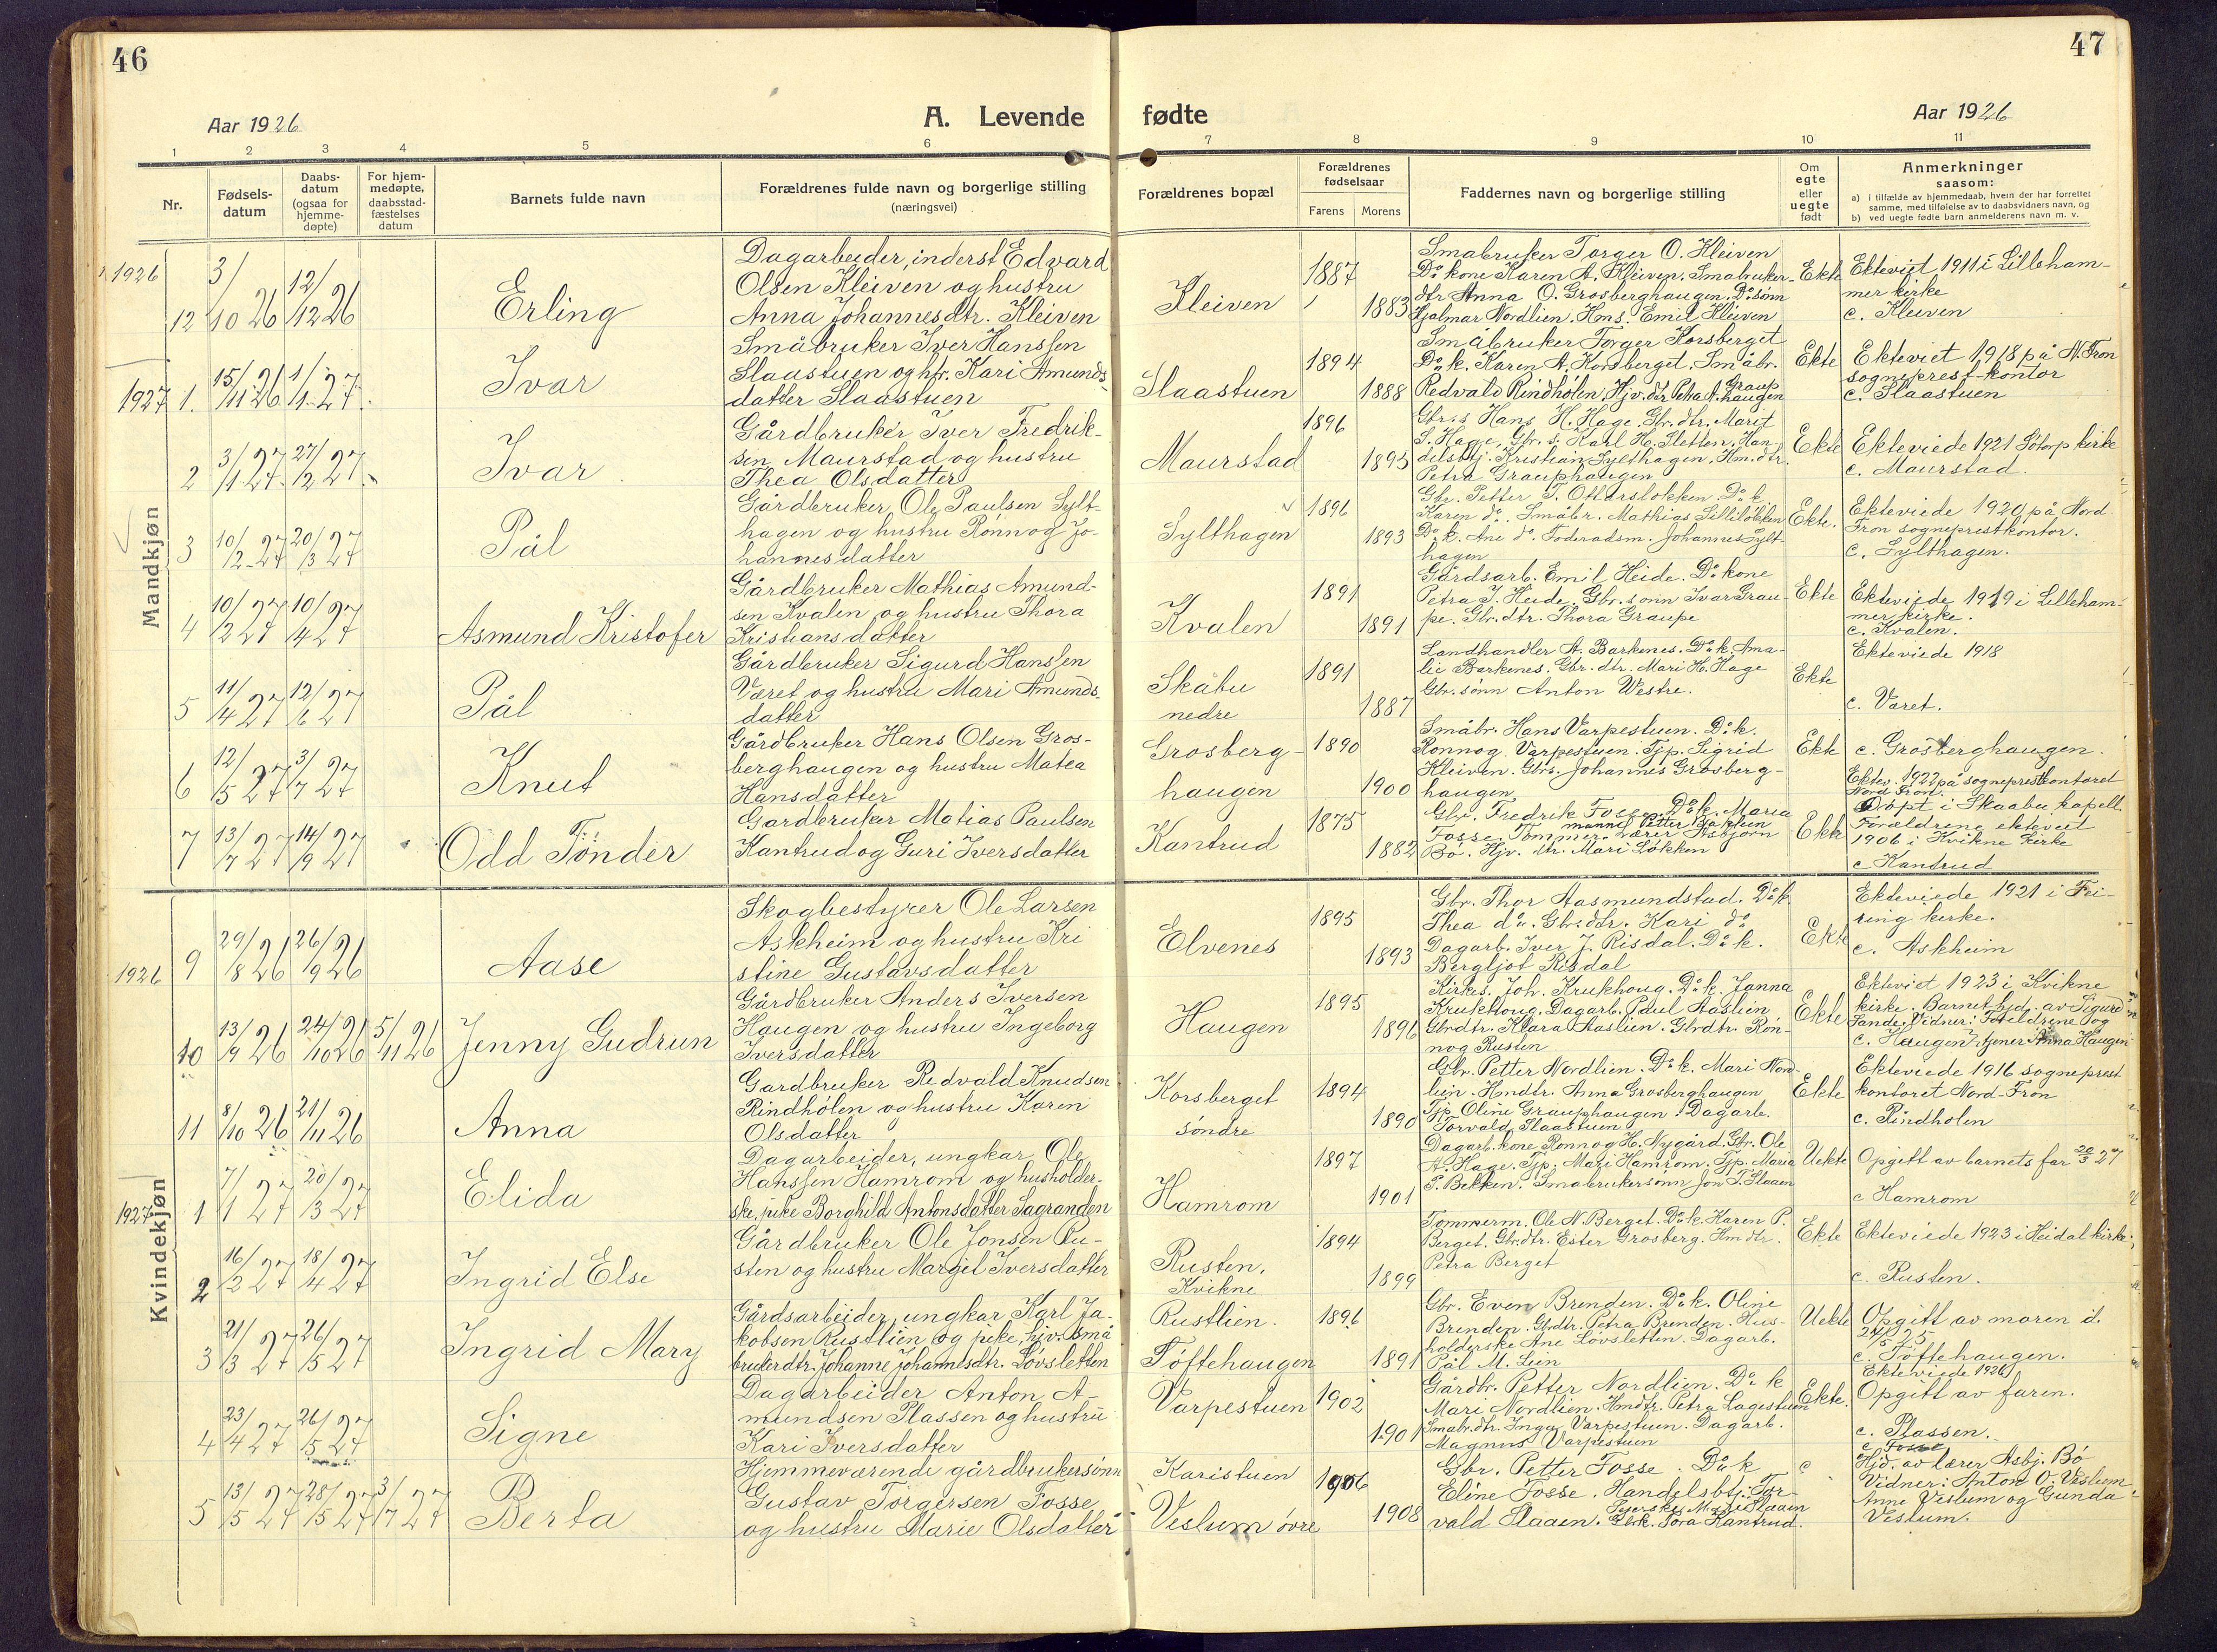 46
47
Aar 1926
A. Levende
fødte
Aar 1926
1 2 3 4 5 6 7 8 9 10 11
Nr.
Fødsels-
datum
Daabs-
datum
(ogsaa for
hjemme-
døpte)
For hjem-
medøpte,
daabsstad-
fæstelses
datum
Barnets fulde navn
Forældrenes fulde navn og borgerlige stilling
(næringsvei)
Forældrenes bopæl
Forældrenes
fødselsaar
Farens Morens
Faddernes navn og borgerlige stilling
Om
egte
eller
uegte
født
Anmerkninger
saasom:
a) i tilfælde av hjemmedaab, hvem der har forrettet
samme, med tilføielse av to daabsvidners navn, og
b) ved uegte fødte barn anmelderens navn m. v.
Mandkjøn
1926
12
3/10 26
12/12 26
Erling
Dagarbeider, inderst Edvard
Olsen Kleiven og hustru
Anna Johannesdtr. Kleiven
Kleiven
1887
1883
Smabruker Torger O. Kleiven
Do kone Karen A. Kleiven. Smabruker-
dtr Anna O. Grosberghaugen. Do sønn
Hjalmar Nordlien. Hms. Emil Kleiven
Ekte
Ekteviet 1911 i Lilleham-
mer kirke
c. Kleiven
1927
1.
15/11 26
1/1 27.
Ivar
Småbruker Iver Hanssen
Slaastuen og htr. Kari Amunds-
datter Slaastuen
Slaastuen
1894
1888
Småbruker Torger Korsberget
Do k. Karen A. Korsberget. Småbr.
Redvald Rindhølen. Hjv. dtr Petra A. Graup
haugen
Ekte
Ekteviet 1918 på N. Fron
sogneprest-kontor
c. Slaastuen
2
3/1 27.
27/2 27.
Ivar
Gårdbruker Iver Fredrik-
sen Maurstad og hustru
Thea Olsdatter
Maurstad
1896
1895
Gbr. s Hans H. Hage. Gbr. dtr. Marit
S. Hage. Gbr. s. Karl H. Sletten. Han-
delsbtj. Kristian Sylthagen. Hm. dtr.
Petra Grauphaugen
Ekte
Ekteviede 1921 Sødorp kirke
c. Maurstad.
3
10/2 27
20/3 27
Pål
Gårdbruker Ole Paulsen Sylt-
hagen og hustru Rønnog Jo-
hannesdatter
Sylthagen
1896
1893
Gbr. Petter T. Ottersløkken. Do k.
Karen do. Småbr. Mathias Lilliløkken
Do k. Ane do. Foderadsm. Johannes Sylt-
hagen
Ekte.
Ekteviede 1920 på Nord
Fron sogneprestkontor.
c. Sylthagen.
4
10/2 27
10/4 27
Asmund Kristofer
Gårdbruker Mathias Amund-
sen Kvalen og hustru Thora
Kristiansdatter
Kvalen
1891
1891
Gårdsarb. Emil Heide. Do kone
Petra J. Heide. Gbr. sønn Ivar Grau-
pe. Gbr. dtr. Thora Graupe
Ekte
Ekteviede 1919 i Lilleham-
mer kirke.
c. Kvalen.
5
11/4 27
12/6 27
Pål
Gårdbruker Sigurd Hanssen
Været og hustru Mari Amunds-
datter
Skåbu
nedre
1891
1887
Landhandler A. Barkenes. Do k. Ama-
lie Barkenes. Gbr. dtr. Mari H. Hage
Gbr. sønn Anton Westre.
Ekte
Ekteviede 1918
c. Været.
6
12/5 27
3/7 27
Knut
Gårdbruker Hans Olsen Gros-
berghaugen og hustru Matea
Hansdatter
Grosberg-
haugen
1890
1900
Småbr. Hans Varpestuen. Do k.
Rønnog Varpestuen. Tjp. Sigrid
Kleiven. Gbrs. Johannes Grosberg-
haugen
Ekte
c. Grosberghaugen.
Ektev. 1922 på sogneprestkontoret
Nord Fron.
7
13/7 27
14/9 27
Odd Tønder
Gardbruker Matias Paulsen
Kantrud og Guri Iversdatter
Kantrud
1875
1882
Gbr. Fredrik Fosse. Do k. Maria
Fosse. Tømmermand Petter Bakken
Lærer Asbjørn
Bø. Hjv. dtr. Mari Løkken
Ekte
Døpt i Skaabu kapell
Forældrene ekteviet
1906 i Kvikne kirke
c Kantrud
Kvindekjøn
1926
9
29/8 26
26/9 26
Aase
Skogbestyrer Ole Larsen
Askheim og hustru Kri
stine Gustavsdatter
Elvenes
1895
1893
Gbr. Thor Aasmundstad. Do k.
Thea do. Gbr. dtr. Kari do
Dagarb. Iver J. Risdal. Do k.
Bergljot Risdal
Ekte
Ekteviede 1921 i Fei-
ring kirke.
c. Askheim
10
13/9 26
24/10 26
5/11 26
Jenny Gudrun
Gårdbruker Anders Iversen
Haugen og hustru Ingeborg
Iversdatter
Haugen
1895
1896
Kirkes. Joh. Krukhoug. Do k. Janna
Krukhoug. Dagarb. Paul Aaslien
Gbrdtr. Klara Aaslien. Gbrdtr. Røn-
nog Rusten
Ekte
Ekteviet 1923 i Kvikne
kirke. Barnet hjd. av Sigurd
Sande. Vidner: Foreldrene og
c. Haugen tjener Anna Haugen
11
8/10 26
21/11 26
Anna
Gardbruker Redvald Knudsen
Rindhølen og hustru Karen
Olsdatter
Korsberget
søndre
1894
1890
Gbr. Petter Nordlien. Do k. Mari Nord-
lien. Hmdtr. Anna Grosberghaugen
Tjp. Oline Grauphaugen. Dagarb.
Torvald Slaastuen
Ekte
Ekteviede 1916 sogneprest
kontoret Nord-Fron
c. Rindhølen
1927
1
7/1 27
20/3 27
Elida
Dagarbeider, ungkar Ole
Hanssen Hamrom og husholder-
ske, pike Borghild Antonsdatter Sagranden
Hamrom
1897
1901
Dagarb. kone Rønnog H. Nygård. Gbr. Ole
A. Hage. Tjp. Mari Hamrom. Tjp. Maria
P. Bekken. Småbrukersønn Jon T. Slaaen
Uekte
Opgitt av barnets far 20/3 27
c Hamrom
2
16/2 27
18/4 27
Ingrid Else
Gårdbruker Ole Jonsen Ru-
sten og hustru Margit Iversdatter
Rusten,
Kvikne
1894
1899
Tømmerm. Ole N. Berget. Do k. Karen P.
Berget. Gbrdtr. Ester Grosberg. Hmdtr.
Petra Berget
Ekte
Ekteviede 1923 i Heidal kirke.
c. Rusten.
3
21/3 27
26/5 27
Ingrid Mary
Gårdsarbeider, ungkar Karl Ja-
kobsen Rustlien og pike, hjv. små
brukerdtr. Johanne Johannesdtr. Løvsletten
Rustlien.
Tøftehaugen
1896
1891
Gbr. Even Brenden. Do k. Oline
Brenden. Gbrdtr. Petra Brenden. Hus-
holderske Ane Løvsletten. Dagarb.
Pål M. Lien
Uekte
Opgitt av moren d.
24/5 25
c. Tøftehaugen.
4
23/4 27
26/5 27
Signe
Dagarbeider Anton A-
mundsen Plassen og hustru
Kari Iversdatter
Varpestuen
1902
1901
Gårdbr. Petter Nordlien. Do k
Mari Nordlien. Hmdtr. Petra Lagestuen
Smabr. dtr. Inga Varpestuen. Dagarb.
Magnus Varpestuen
Ekte.
Ekteviede 1926
Opgitt av faren.
c. Plassen.
5
13/5 27
28/5 27
3/7 27
Berta
Hjemmeværende gårdbrukersønn
Gustav Torgersen Fosse
og hustru Marie Olsdatter
Karistuen
Veslum øvre
1906
1908
Gbr. Petter Fosse. Do k
Eline Fosse. Handelsbtj. Tor-
vald Slaaen. Mari Slaaen
Tora Kantrud.
e
c Fosse
Hjd. av lærer Asbj. Bø
Vidner: Anton O. Veslum
Anne Veslum og Gunda
Veslum.